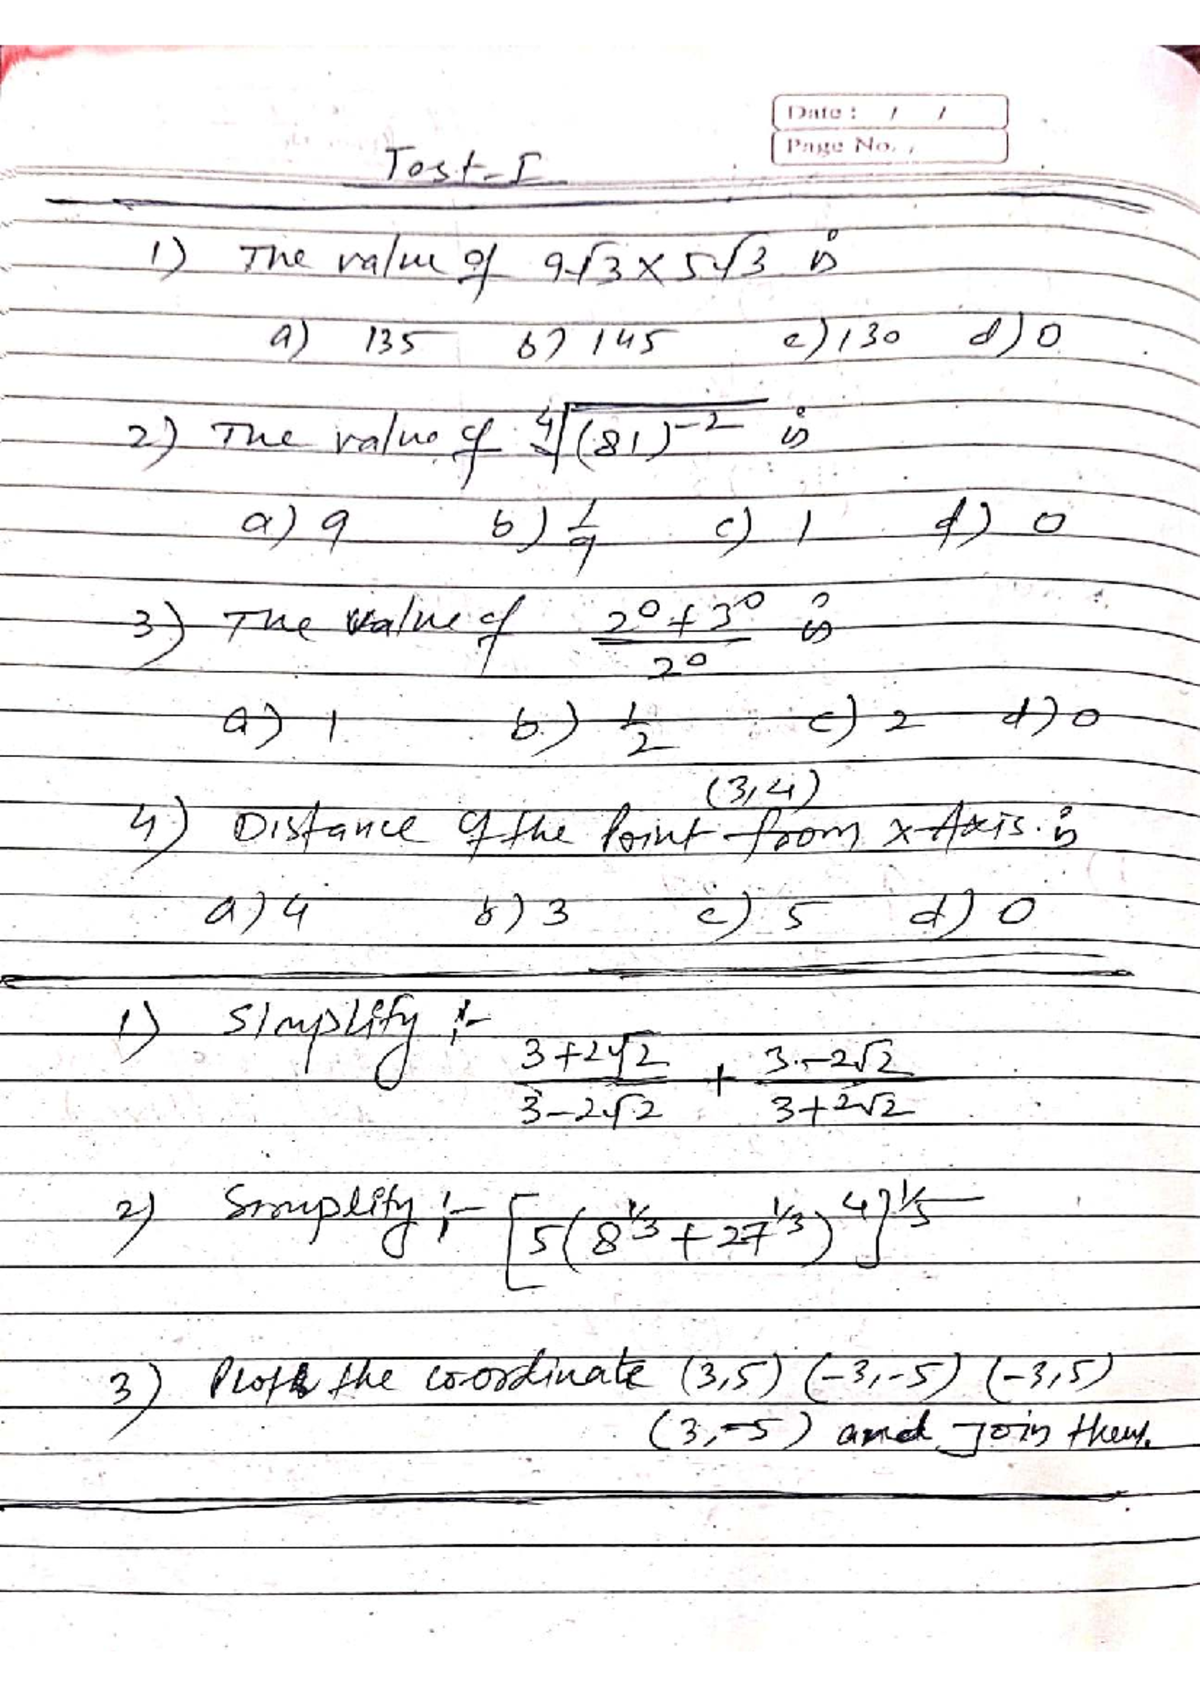 Date : / /
Page No.
Test-I
1) The value of 9√3 × 5√3 is
a) 135 b) 145 c) 130 d) 0
2) The value of ∜(81)⁻² is
a) 9 b) 1/9 c) 1 d) 0
3) The value of (2⁰ + 3⁰)/2⁰ is
a) 1 b) 1/2 c) 2 d) 0
(3,4)
4) Distance of the Point from x-Axis is
a) 4 b) 3 c) 5 d) 0
1) Simplify :-
3+2√2 / 3-2√2 + 3-2√2 / 3+2√2
2) Simplify :- [5(8^1/3 + 27^1/3)^4]^1/5
3) Plot the co-ordinate (3,5) (-3,-5) (-3,5)
(3,-5) and Join them.